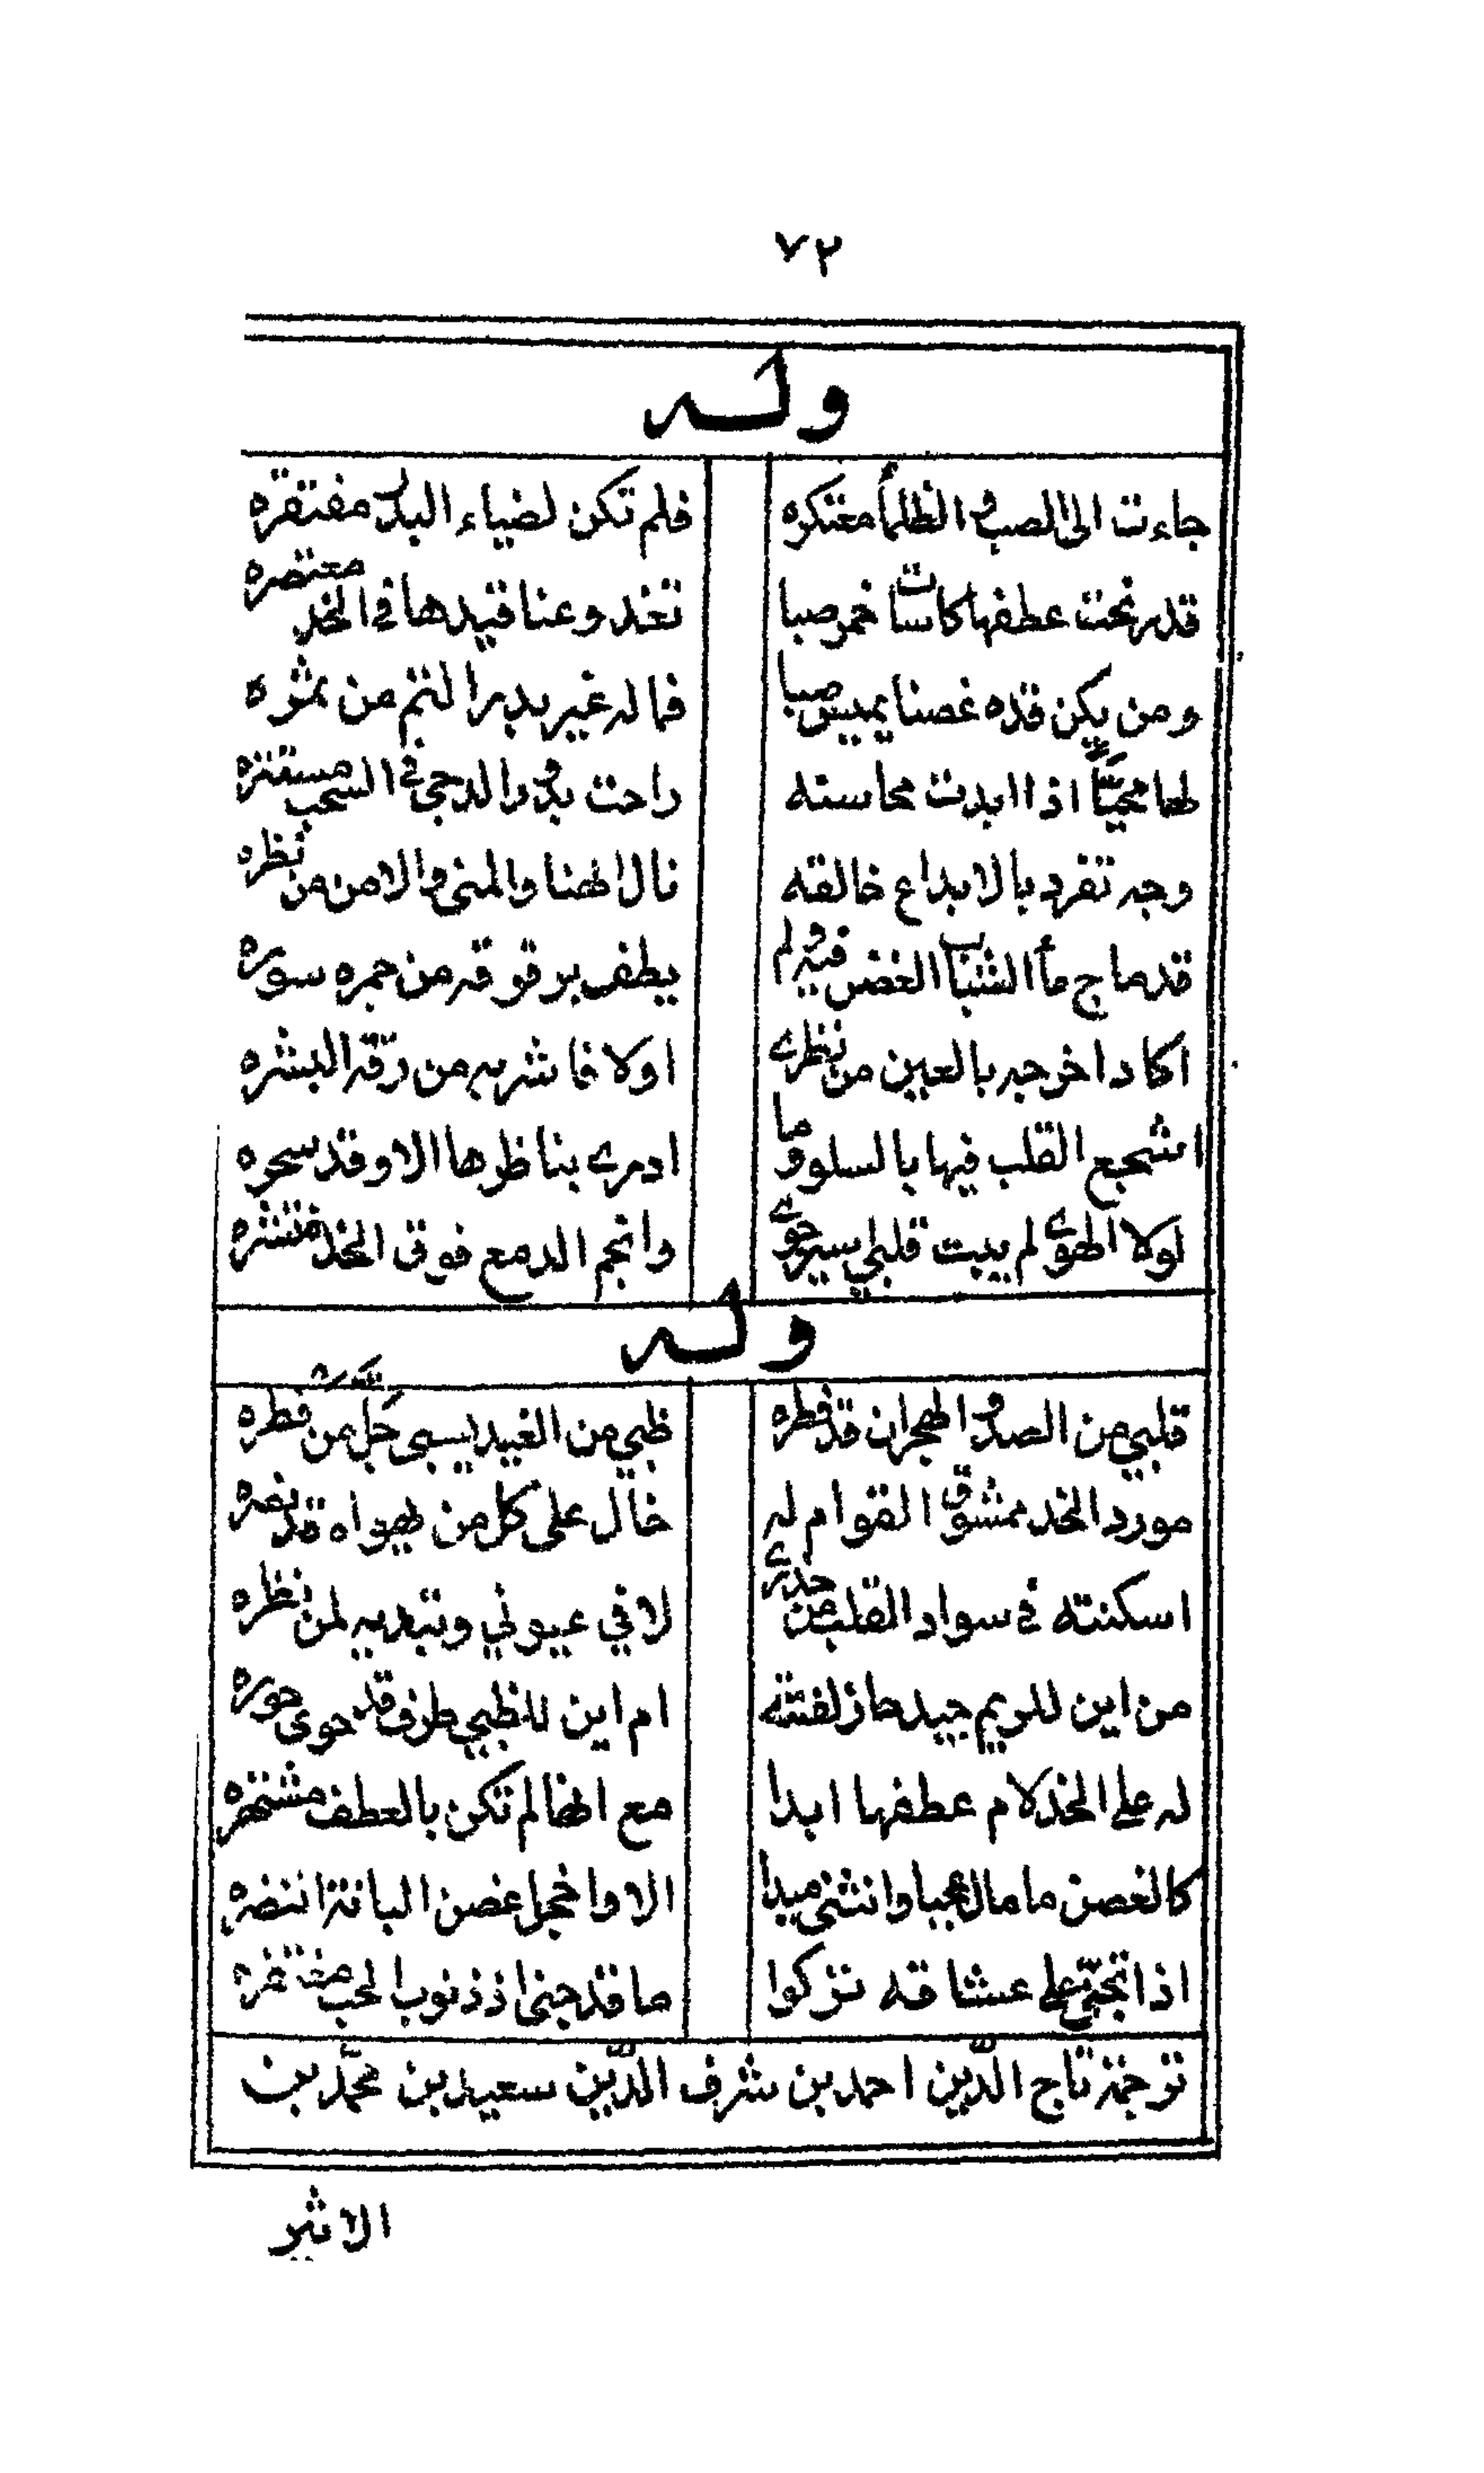 ٧٢
وله
جاءت الى الصب والظلمأ معتكره فلم تكن لضياء البدر مفتقره
قد رنحت عطفها كاسات خمر صبا تغدو عناقيدها في الخد معتصره
ومن يكن قده غصنا يميس صبا فما له غير بدر التم من ثمره
لها محيّاً اذا ابدت محاسنه راحت بدور الدجى في السحب مستتره
وجه تفرد بالابداع خالقه نال الهنا والمنى والامن من نظره
قد ماج مأ الشباب الغض فيه ولم يطف برقوقه من جمره سوره
اكاد اخرجه بالعين من نظري اولا فاشربه من رقّة البشره
اشجع القلب فيها بالسلو وما ادري بناظرها الا وقد سحره
لولا الهوى لم يبت قلبي اسير جوى وانجم الدمع فوق الخد منتثره
وله
قلبي من الصد والهجران قد فطره ظبي من الغيد يسبى جَلّ من فطره
مورد الخد ممشوق القوام له خال على كل من يهواه قد نصره
اسكنته في سواد القلب من حذري لا في عيوني وتبديه لمن نظره
من اين للريم جيد حاز لفتته ام اين للظبي طرف قد حوى حوره
له على الخد لام عطفها ابدا مع انها لم تكن بالعطف مشتهره
كالغصن ما مال عجبا وانثنى ميدا الا واخجل غصن البانة النضره
اذا تجنّى على عشاقه تركوا ما قد جنى اذ ذنوب الحب مغتفره
ترجمة تاج الدّين احمد بن شرف الدّين سعيد بن محمّد بن
الاثير